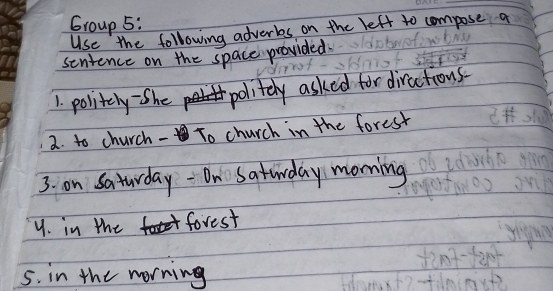 Group 5:
Use the following adverbs on the left to compose a
sentence on the space provided.
1. politely - She politely asked for directions.
2. to church - To church in the forest
3. on Saturday - On Saturday morning
4. in the forest
5. in the morning